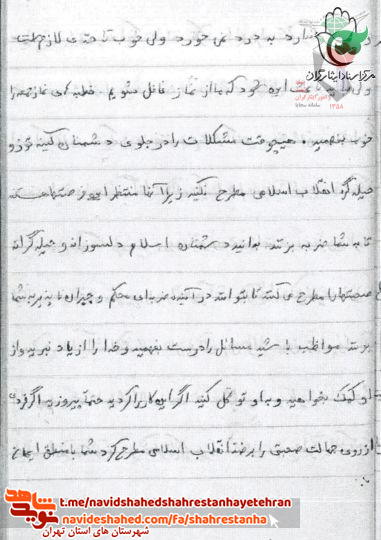 به درد نمی خورد ولی خوب تا حدی لازم است
ولی باعث این شود که ما از نماز غافل شویم. خطبه های نماز جمعه را
خوب بفهمید. هیچوقت مشکلات را در جلوی دشمنان کینه توز و
حیله گر انقلاب اسلامی مطرح نکنید زیرا آنها منتظر این روز صحبتها هستند
تا به شما ضربه بزنند. بدانید دشمنان اسلام دلسوزانه و حیله گرانه
صحبتها را مطرح می کنند تا بتوانند در آینده ضربه ای محکم و جبران ناپذیر به شما
بزنند مواظب باشید مسائل را درست بفهمید و خدا را از یاد نبرید و از
او کمک بخواهید و به او توکل کنید اگر این کار را کردید حتماً پیروزید اگر فردی
از روی جهالت صحبتی را بر ضد انقلاب اسلامی مطرح کرد شما با منطق
مرکز اسناد ایثارگران
۱۳۵۸
نوید شاهد
t.me/navidshahedshahrestanhayetehran
navideshahed.com/fa/shahrestanha
شهرستان های استان تهران